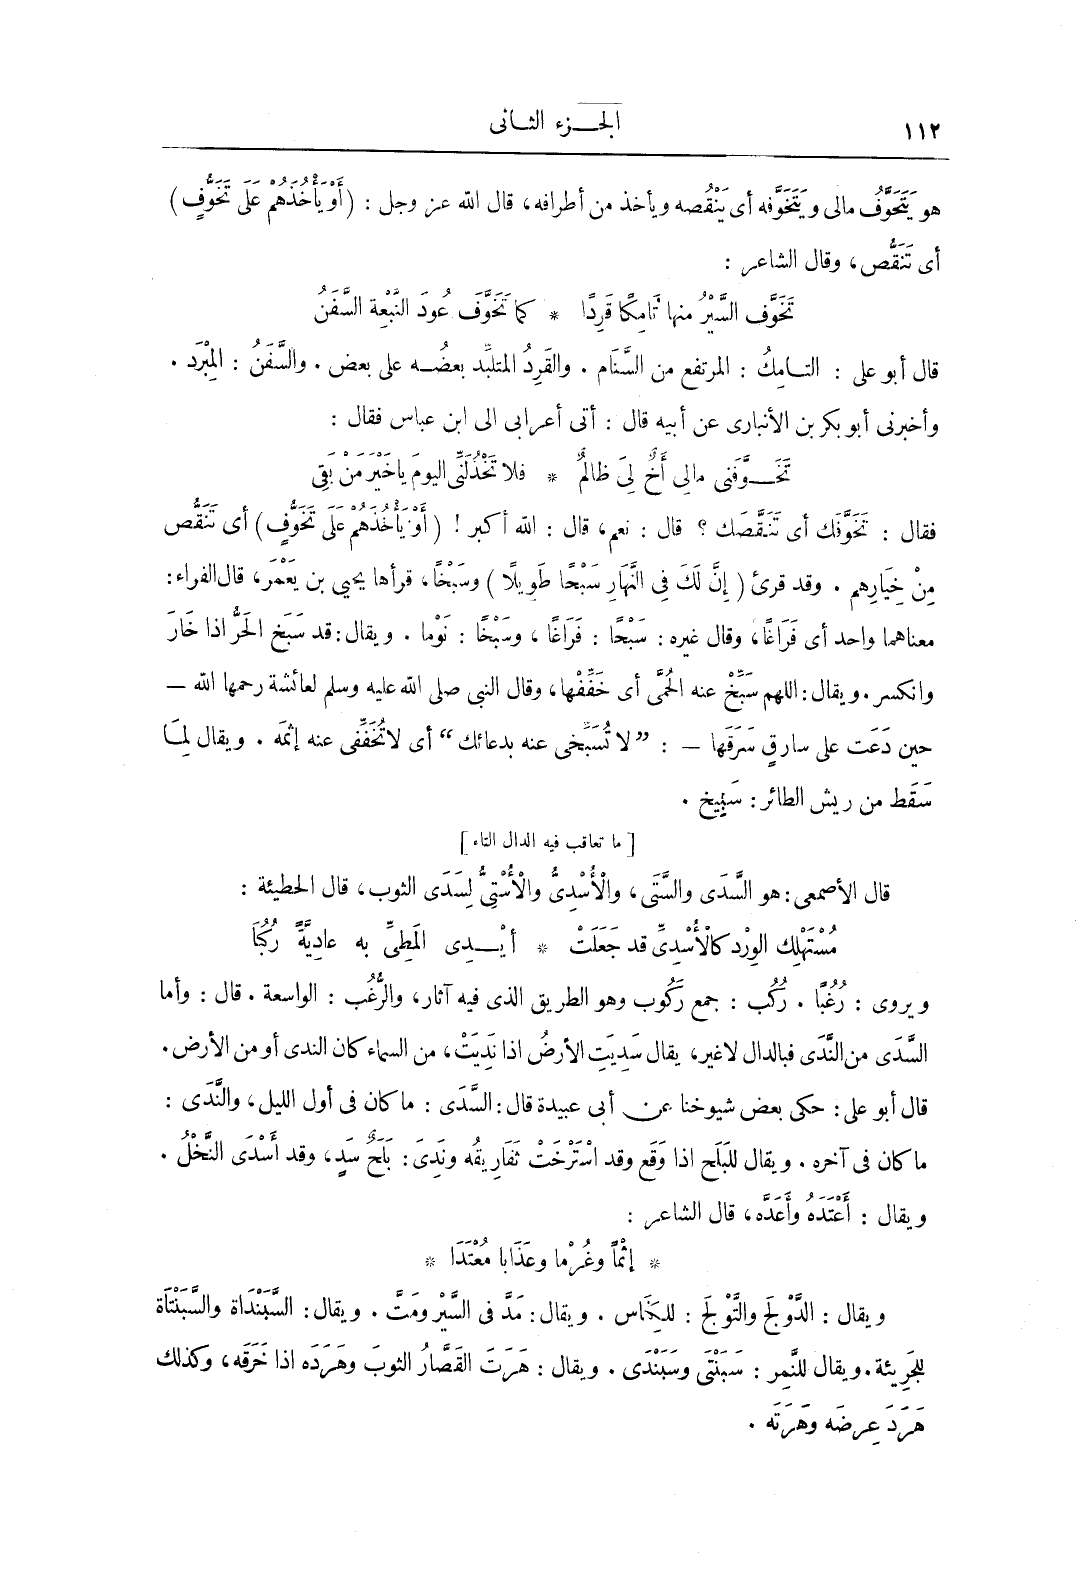 ١١٢
الجـــزء الثـانى
هو يَتَحَوَّفُ مالى ويَتَخَوَّفه أى يَنْقُصه ويأخذ من أطرافه، قال الله عز وجل : (أَوْ يَأْخُذَهُمْ عَلَى تَخَوُّفٍ)
أى تَنَقُّص، وقال الشاعر :
تَخَوَّف السَّيْرُ منها تَامِكًا قَرِدًا * كما تَخَوَّفَ عُودَ النَّبْعة السَّفَنُ
قال أبو على : التـامِكُ : المرتفع من السَّنَام . والقَرِدُ المتلبِّد بعضُـه على بعض . والسَّفَنُ : المِبْرَد .
وأخبرنى أبو بكر بن الأنبارى عن أبيه قال : أتى أعرابى الى ابن عباس فقال :
تَخَـوَّفَنى مالى أَخٌ لِىَ ظالمٌ * فلا تَخْذُلَنِّى اليومَ ياخَيْرَ مَنْ بَقِى
فقال : تَخَوَّفَك أى تَنَقَّصَك ؟ قال : نعم، قال : الله أكبر ! (أَوْ يَأْخُذَهُمْ عَلَى تَخَوُّفٍ) أى تَنَقُّص
مِنْ خِيَارِهم . وقد قرئ ( إِنَّ لَكَ فِى النَّهَارِ سَبْحًا طَوِيلًا ) وسَبْخًا، قرأها يحيى بن يَعْمَر، قال الفراء:
معناهما واحد أى فَرَاغًا، وقال غيره : سَبْحًا : فَرَاغًا ، وسَبْخًا : نَوْما . ويقال: قد سَبَخ الحَرُّ اذا خَارَ
وانكسر . ويقال: اللهم سَبِّخْ عنه الحُمَّى أى خَفِّفْها، وقال النبى صلى الله عليه وسلم لعائشة رحمها الله —
حين دَعَت على سارقٍ سَرَقَها — : ”لا تُسَبِّخى عنه بدعائك“ أى لا تُخَفِّفى عنه إثمَه . ويقال لِمَـا
سَقَط من ريش الطائر : سَبِيخ .
[ ما تعاقب فيه الدال التاء ]
قال الأصمعى: هو السَّدَى والسَّتَى، والْأُسْدِىُّ والْأُسْتِىُّ لِسَدَى الثوب، قال الحطيئة :
مُسْتَهْلِك الوِرْد كالْأُسْدِىِّ قد جَعَلَتْ * أيْــدِى المَطِىِّ به عادِيَّةً رُكُبَا
ويروى : رُغُبًا . رُكُب : جمع رَكُوب وهو الطريق الذى فيه آثار، والرُّغُب : الواسعة . قال : وأما
السَّدَى من النَّدَى فبالدال لاغير، يقال سَدِيَتِ الأرضُ اذا نَدِيَتْ، من السماء كان الندى أو من الأرض .
قال أبو على: حكى بعض شيوخنا عن أبى عبيدة قال: السَّدَى : ما كان فى أول الليل، والنَّدَى :
ما كان فى آخره . ويقال للبَلَح اذا وَقَع وقد اسْتَرْخَتْ ثَفَارِيقُه ونَدِىَ : بَلَحٌ سَدٍ، وقد أَسْدَى النَّخْلُ .
ويقال : أَعْتَدَهُ وأَعَدَّه، قال الشاعر :
* إثْمًا وغُرْما وعَذَابا مُعْتَدَا *
ويقال : الدَّوْلَج والتَّوْلَج : للكِنَاس . ويقال : مَدَّ فى السَّيْر ومَتَّ . ويقال: السَّبَنْدَاة والسَّبَنْتَاة
للجَرِيئة . ويقال للنَّمِر : سَبَنْتَى وسَبَنْدَى . ويقال : هَرَتَ القَصَّارُ الثوبَ وهَرَدَه اذا خَرَقه، وكذلك
هَرَدَ عِرضَه وهَرَتَه .